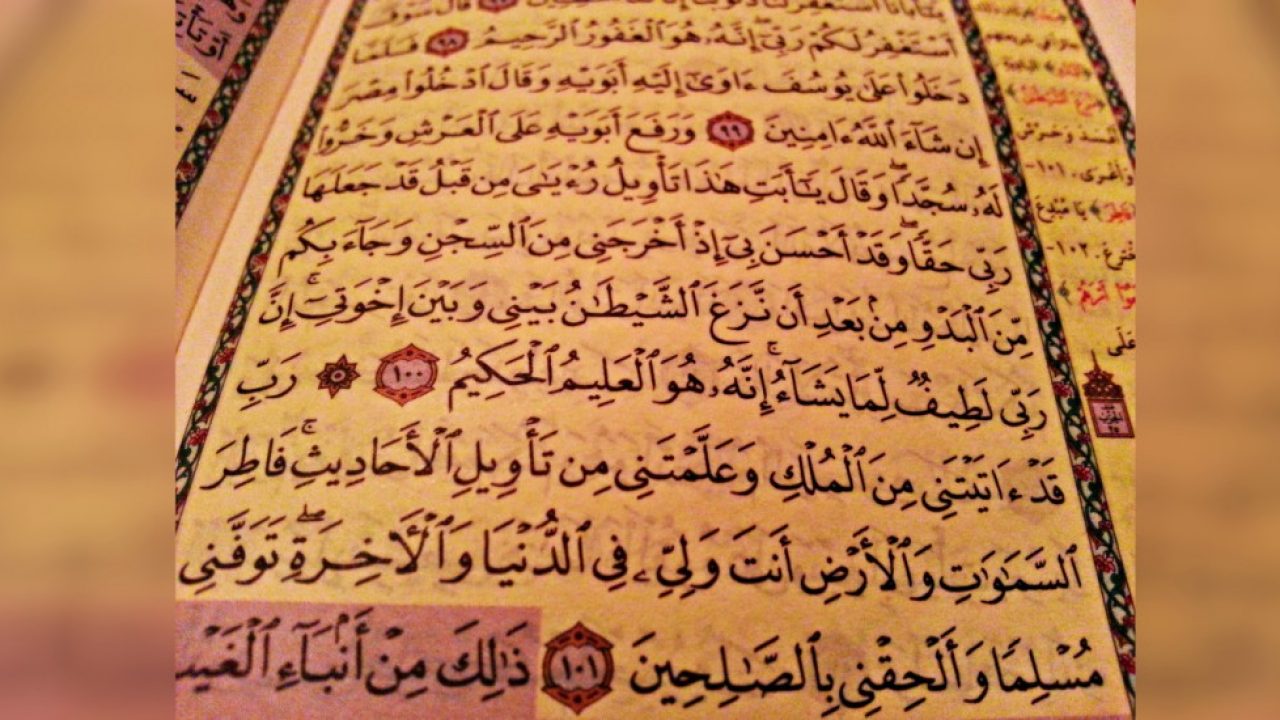 يَٰٓأَبَانَا ٱسۡتَغۡفِرۡ لَنَا ذُنُوبَنَآ إِنَّا كُنَّا خَٰطِـِٔينَ ٩٧ قَالَ سَوۡفَ
أَسۡتَغۡفِرُ لَكُمۡ رَبِّيٓۖ إِنَّهُۥ هُوَ ٱلۡغَفُورُ ٱلرَّحِيمُ ٩٨ فَلَمَّا
دَخَلُواْ عَلَىٰ يُوسُفَ ءَاوَىٰٓ إِلَيۡهِ أَبَوَيۡهِ وَقَالَ ٱدۡخُلُواْ مِصۡرَ
إِن شَآءَ ٱللَّهُ ءَامِنِينَ ٩٩ وَرَفَعَ أَبَوَيۡهِ عَلَى ٱلۡعَرۡشِ وَخَرُّواْ
لَهُۥ سُجَّدٗاۖ وَقَالَ يَٰٓأَبَتِ هَٰذَا تَأۡوِيلُ رُءۡيَٰيَ مِن قَبۡلُ قَدۡ جَعَلَهَا
رَبِّي حَقّٗاۖ وَقَدۡ أَحۡسَنَ بِيٓ إِذۡ أَخۡرَجَنِي مِنَ ٱلسِّجۡنِ وَجَآءَ بِكُم
مِّنَ ٱلۡبَدۡوِ مِنۢ بَعۡدِ أَن نَّزَغَ ٱلشَّيۡطَٰنُ بَيۡنِي وَبَيۡنَ إِخۡوَتِيٓۚ إِنَّ
رَبِّي لَطِيفٞ لِّمَا يَشَآءُۚ إِنَّهُۥ هُوَ ٱلۡعَلِيمُ ٱلۡحَكِيمُ ١٠٠ ۞ رَبِّ
قَدۡ ءَاتَيۡتَنِي مِنَ ٱلۡمُلۡكِ وَعَلَّمۡتَنِي مِن تَأۡوِيلِ ٱلۡأَحَادِيثِۚ فَاطِرَ
ٱلسَّمَٰوَٰتِ وَٱلۡأَرۡضِ أَنتَ وَلِيِّۦ فِي ٱلدُّنۡيَا وَٱلۡأٓخِرَةِۖ تَوَفَّنِي
مُسۡلِمٗا وَأَلۡحِقۡنِي بِٱلصَّٰلِحِينَ ١٠١ ذَٰلِكَ مِنۡ أَنۢبَآءِ ٱلۡغَيۡبِ